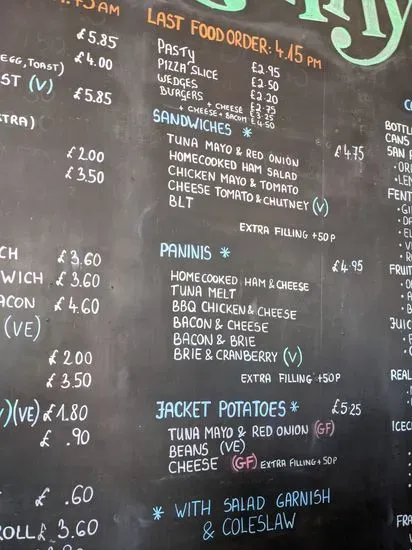 .45 AM
£5.85
EGG, TOAST) £4.00
ST (V) £5.85
XTRA)
£2.00
£3.50
CH £3.60
WICH £3.60
ACON £4.60
(VE)
£2.00
£3.50
)(VE) £1.80
£.90
£.60
ROLL £3.60
LAST FOOD ORDER: 4.15 PM
PASTY £2.95
PIZZA SLICE £2.50
WEDGES £2.20
BURGERS £2.75
+ CHEESE £3.25
+ CHEESE + BACON £4.50
SANDWICHES * £4.75
TUNA MAYO & RED ONION
HOMECOOKED HAM SALAD
CHICKEN MAYO & TOMATO
CHEESE TOMATO & CHUTNEY (V)
BLT
EXTRA FILLING +50P
PANINIS * £4.95
HOMECOOKED HAM & CHEESE
TUNA MELT
BBQ CHICKEN & CHEESE
BACON & CHEESE
BACON & BRIE
BRIE & CRANBERRY (V)
EXTRA FILLING +50P
JACKET POTATOES * £5.25
TUNA MAYO & RED ONION (GF)
BEANS (VE)
CHEESE (GF) EXTRA FILLING +50P
* WITH SALAD GARNISH
& COLESLAW
BOTTL
CANS
SAN
FENT
FRUIT
JUIC
REAL
ICEC
FRA